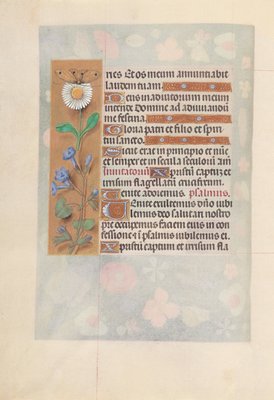 nes Et os meum annunciabit
laudem tuam.
Deus in adiutorium meum
intende Domine ad adiuuandū
me festina.
Gloria patri et filio et spiri
tui sancto.
Sicut erat in principio et nūc
et semper et in secula seculorū amē
Inuitatoriū Xpristum captū et
irrisum flagellatū crucifixum.
Venite adoremus. psalmus.
Venite exultemus dño iubi
lemus deo salutari nostro
preoccupemus faciem eius in con
fessione et ī psalmis iubilemus ei.
Xpristum captum et irrisum fla